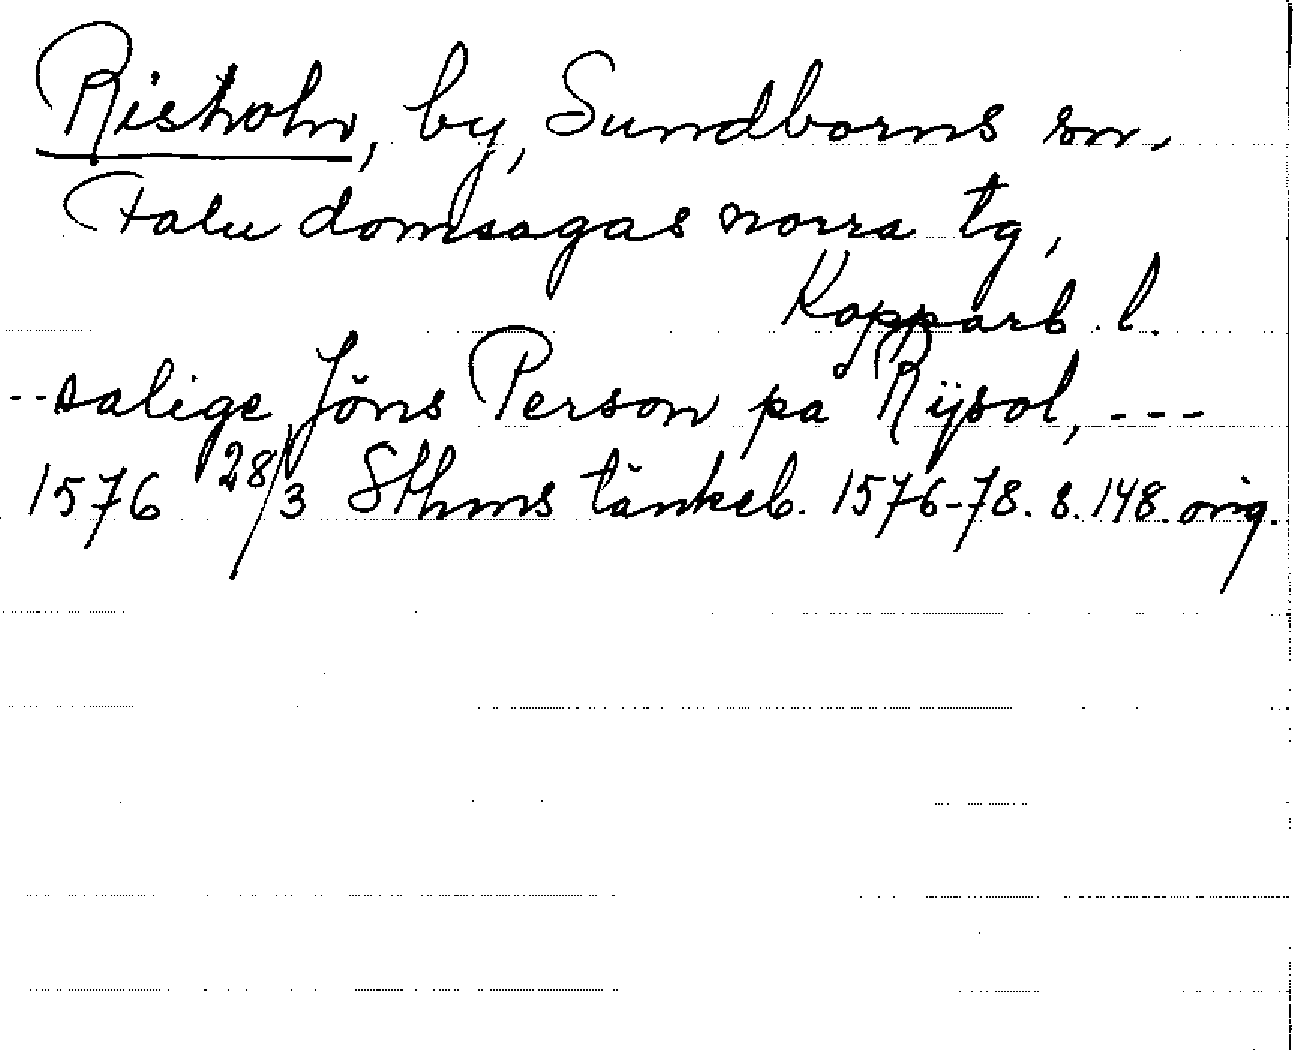 Risholn, by, Sundborns sn.
Falu domsagas norra tg,
Kopparb. l.
-- salige Jöns Person på Rijsol, ---
1576 28/3 Sthms tänkeb. 1576-78. s. 148. orig.